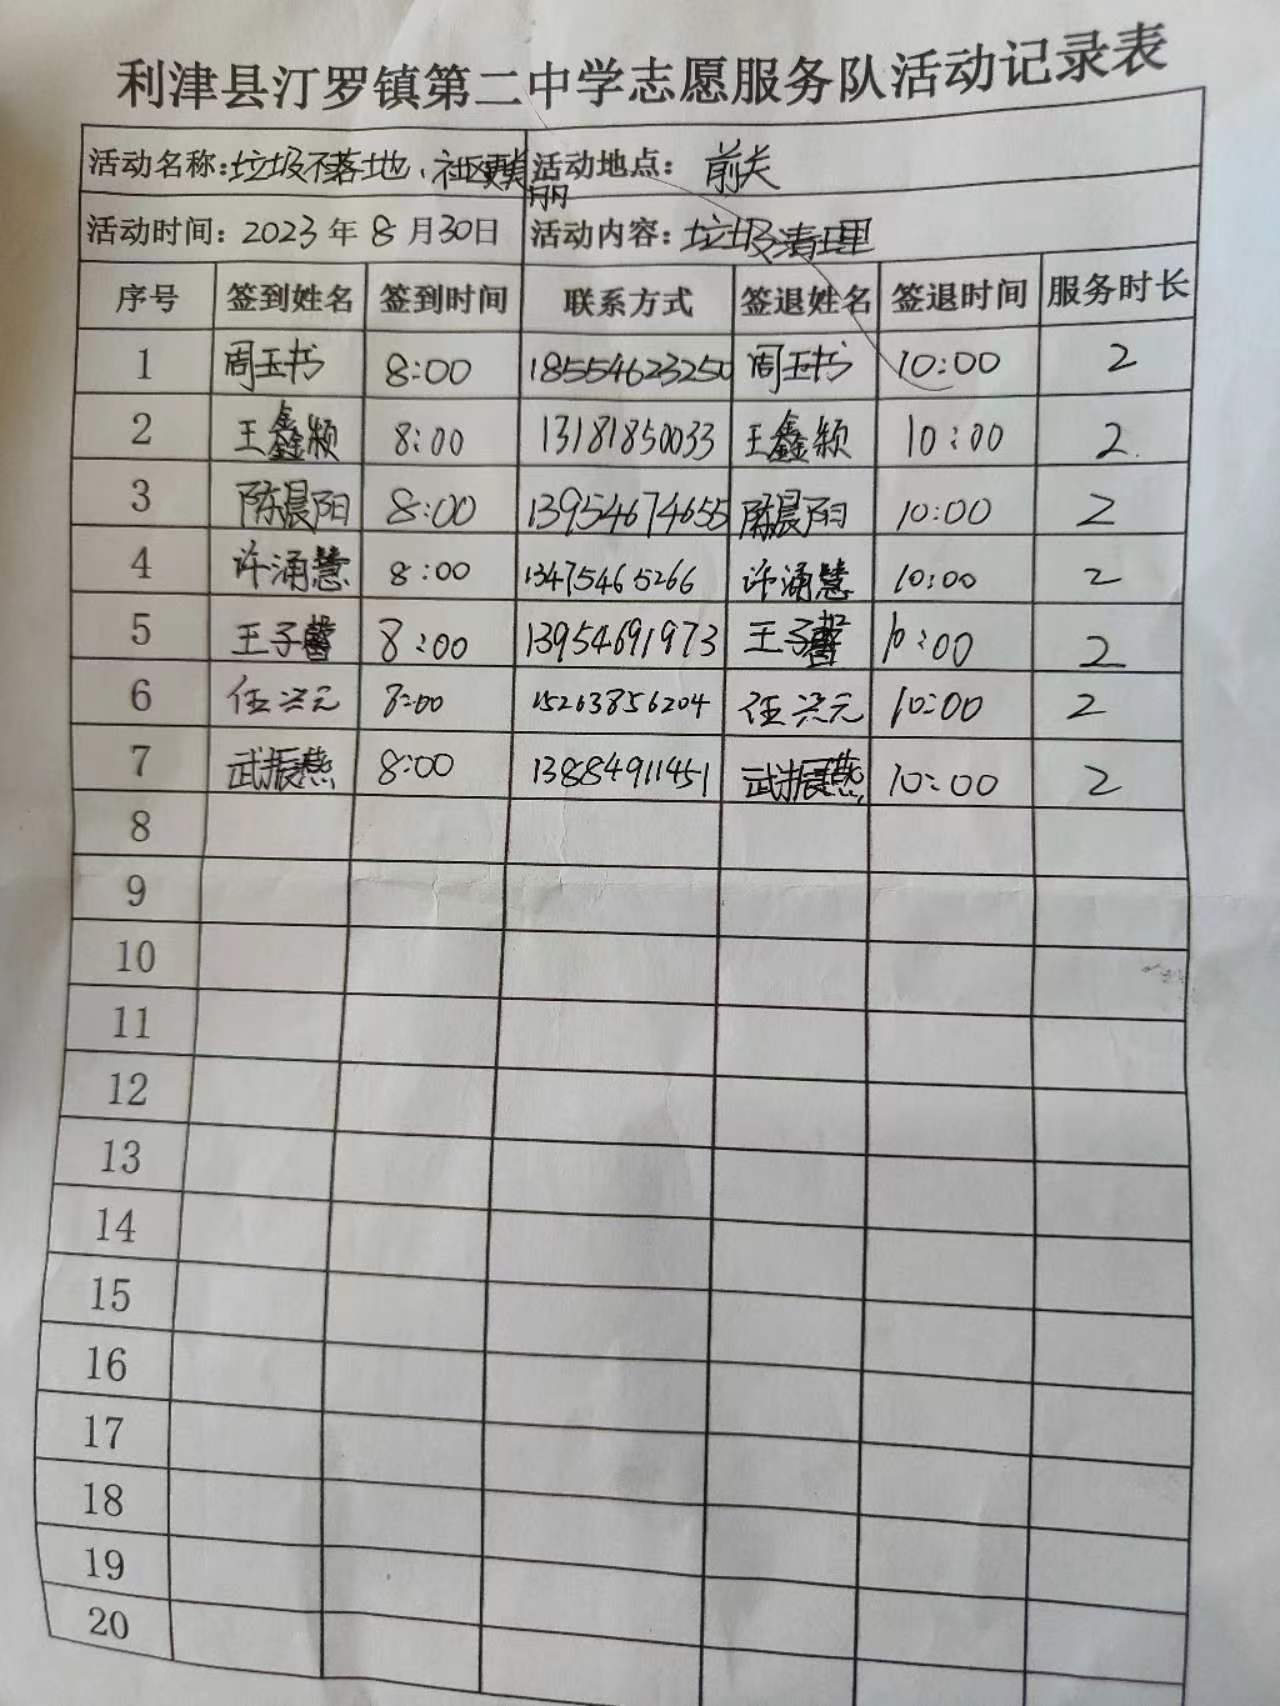 利津县汀罗镇第二中学志愿服务队活动记录表
活动名称:垃圾不落地、社区更美丽 活动地点: 前关
活动时间: 2023年8月30日 活动内容: 垃圾清理
序号 签到姓名 签到时间 联系方式 签退姓名 签退时间 服务时长
1 周玉书 8:00 18554623250 周玉书 10:00 2
2 王鑫颖 8:00 13181850033 王鑫颖 10:00 2
3 陈晨阳 8:00 13954674655 陈晨阳 10:00 2
4 许涌慧 8:00 13475465266 许涌慧 10:00 2
5 王子馨 8:00 13954691973 王子馨 10:00 2
6 任兴元 8:00 15263856204 任兴元 10:00 2
7 武振燕 8:00 13884911451 武振燕 10:00 2
8
9
10
11
12
13
14
15
16
17
18
19
20